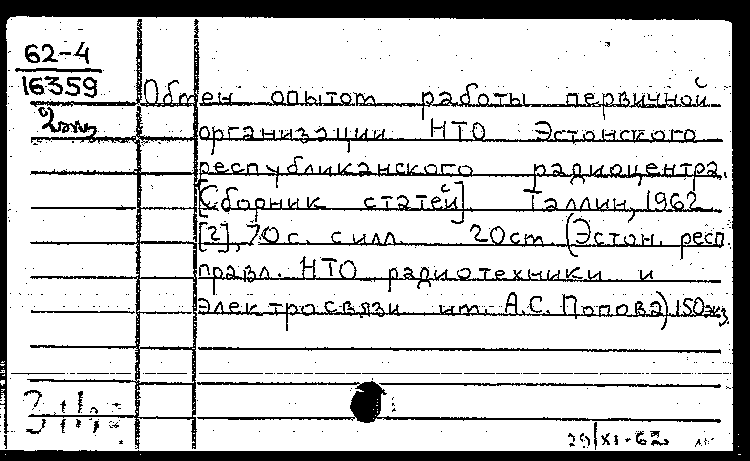 62-4
16359
2 экз
Обмен опытом работы первичной
организации НТО Эстонского
республиканского радиоцентра.
[Сборник статей]. Таллин, 1962
[2], 70 с. с илл. 20 cm (Эстон. респ.
правл. НТО радиотехники и
электросвязи им. А.С. Попова) 150 экз.
29/XI-62